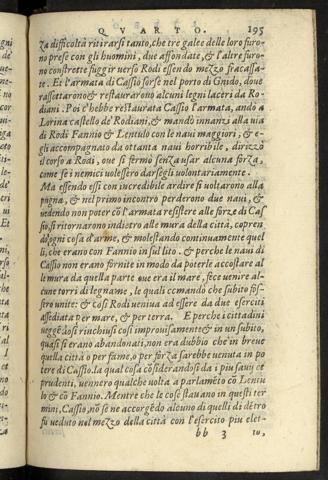 QVARTO. 195
za difficoltà ritirarsi tanto, che tre galee delle loro furo-
no prese con gli huomini, due affondate, & l'altre furo-
no constrette fuggir verso Rodi essendo mezzo fracassa-
te. Et l'armata di Cassio sorse nel porto di Gnido, doue
rassettarono & restaurarono alcuni legni laceri da Ro-
diani. Poi c'hebbe restaurata Cassio l'armata, andò a
Lorina castello de' Rodiani, & mandò innanzi alla uia
di Rodi Fannio & Lentulo con le naui maggiori, & e-
gli accompagnato da ottanta naui horribile, dirizzò
il corso a Rodi, oue si fermò senza usar alcuna forza,
come se i nemici volessero darsegli volontariamente.
Ma essendo essi con incredibile ardire si voltarono alla
pugna, & nel primo incontro perderono due naui, &
uedendo non poter cō l'armata resistere alle forze di Cas
sio, si ritornarono indietro alle mura della città, copren
do ogni cosa d'arme, & molestando continuamente quel
li, che erano con Fannio in sul lito. & perche le naui di
Cassio non erano fornite in modo da poterle accostare al
le mura da quella parte oue era il mare, fece uenire al-
cune torri di legname, le quali ccmando che subito fos-
sero unite: & cosi Rodi ueniua ad essere da due eserciti
assediata per mare, & per terra. E perche i cittadini
uggēdosi rinchiusi cosi improuisamente & in un subito,
quasi si erano abandonati, non era dubbio che in breue
quella città o per fame, o per forza sarebbe uenuta in po
tere di Cassio. la qual cosa cōsiderandosi da i piu sauij et
prudenti, uennero qualche volta a parlamēto cō Lentu
lo & cō Fannio. Mentre che le cose stauano in questi ter
mini, Cassio, nō se ne accorgēdo alcuno di quelli di dētro
fu veduto nel mezzo della città con l'esercito piu elet-
bb 3 to,